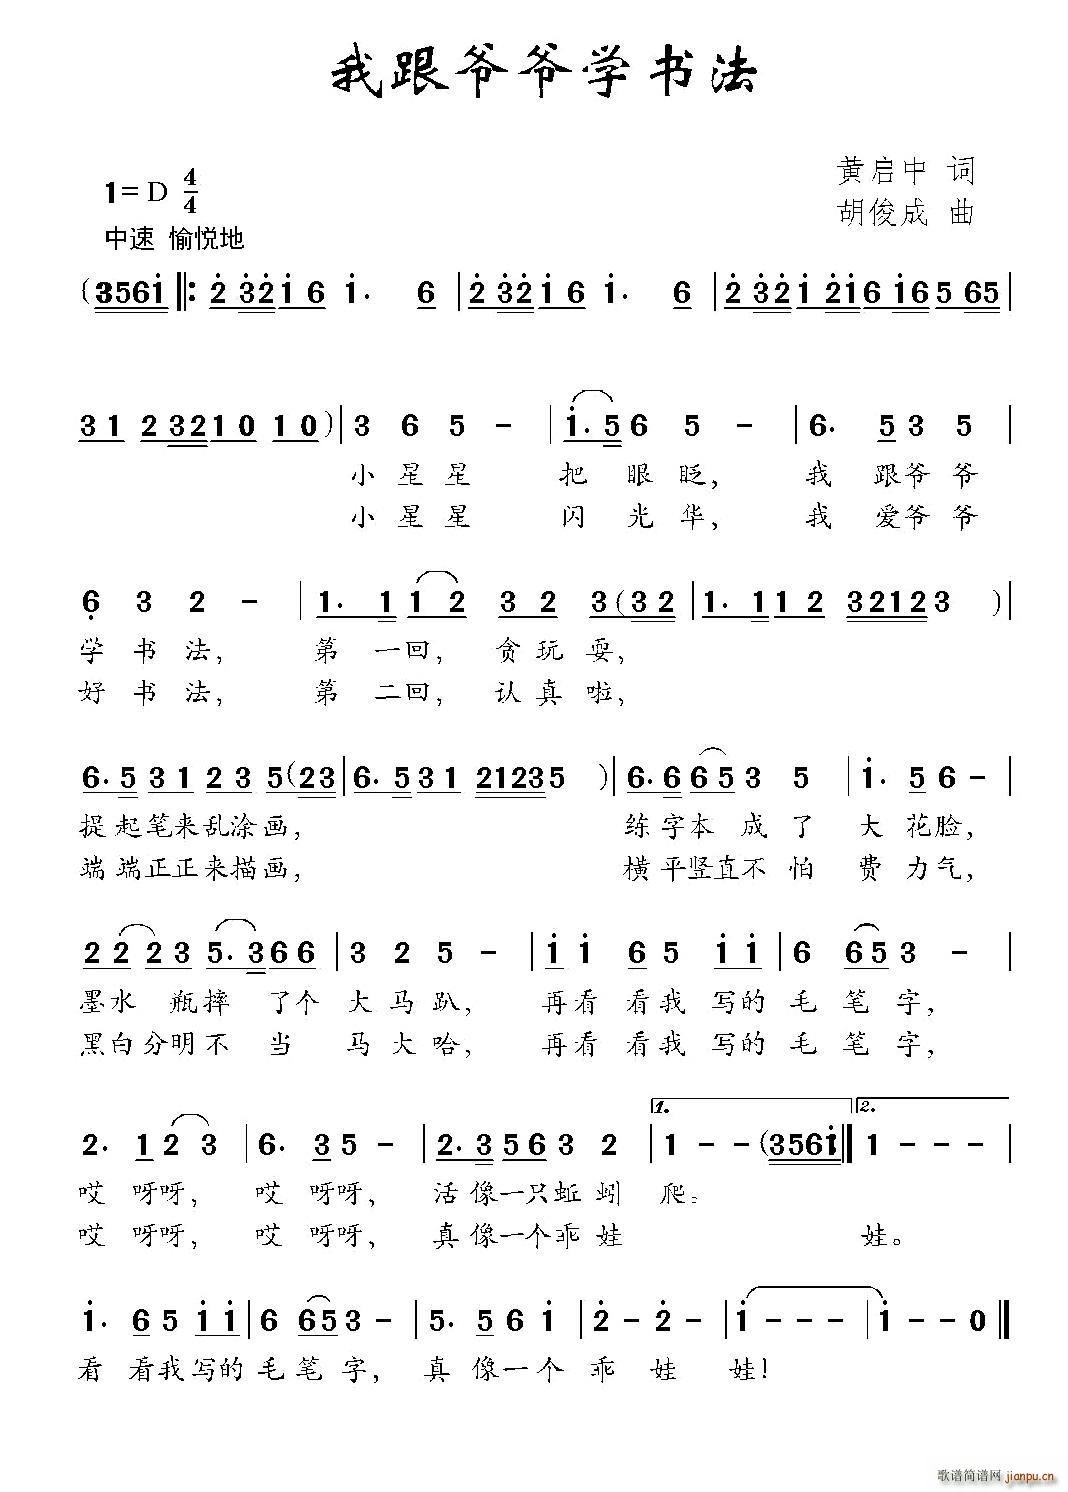 我跟爷爷学书法
黄启中 词
1=D 4/4
胡俊成 曲
中速 愉悦地
(3561̇ ‖: 2̇ 3̇2̇1̇ 6 1̇. 6 | 2̇ 3̇2̇1̇ 6 1̇. 6 | 2̇ 3̇2̇1̇ 2̇1̇6 1̇65 65 |
31 23210 10) | 3 6 5 - | 1̇.5 6 5 - | 6. 5 3 5 |
小 星 星 把 眼 眨, 我 跟爷 爷
小 星 星 闪 光 华, 我 爱爷 爷
6̣ 3 2 - | 1. 1 1 2 3 2 3(32 | 1. 1 1 2 32123) |
学 书 法, 第 一回, 贪玩 耍,
好 书 法, 第 二回, 认真 啦,
6.5 31 23 5(23 | 6.531 21235) | 6.6 653 5 | 1̇. 5 6 - |
提起笔来乱涂画, 练字本 成 了 大 花脸,
端端正正来描画, 横平竖直不 怕 费 力气,
22 23 5.366 | 3 2 5 - | 1̇ 1̇ 6 5 1̇ 1̇ | 6 653 - |
墨水 瓶摔 了个 大马趴, 再看 看我 写的 毛 笔 字,
黑白分明不 当 马大哈, 再看 看我 写的 毛 笔 字,
1. 2.
2. 1 2 3 | 6. 3 5 - | 2.3 563 2 | 1 - - (3561̇ :‖ 1 - - - |
哎 呀呀, 哎 呀呀, 活 像一只蚯 蚓 爬。
哎 呀呀, 哎 呀呀, 真 像一个乖 娃 娃。
1̇. 65 1̇1̇ | 6 653 - | 5. 5 6 1̇ | 2̇ - 2̇ - | 1̇ - - - | 1̇ - - 0 ‖
看 看我写的 毛 笔 字, 真 像一个 乖 娃 娃!
歌谱简谱网 jianpu.cn